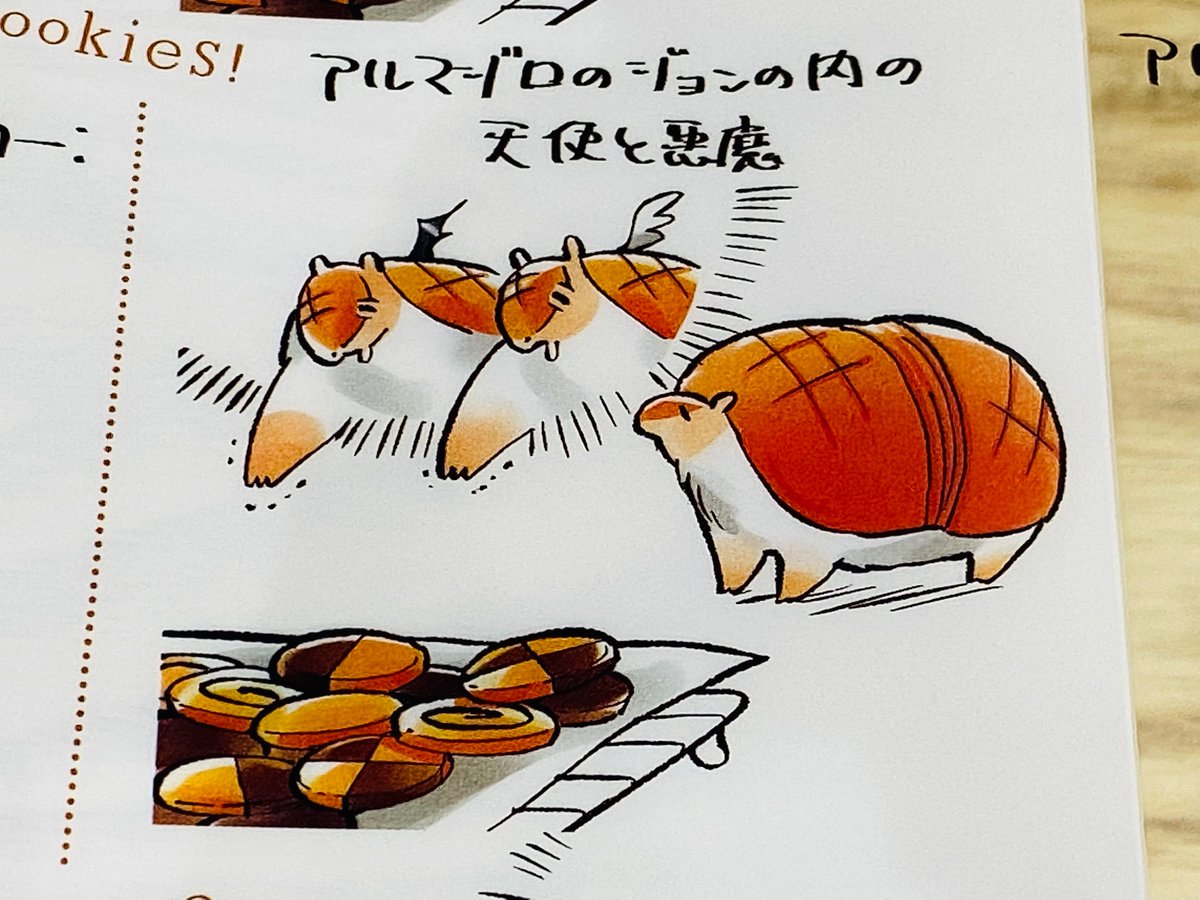 ookies!
アルマジロのジョンの内の
天使と悪魔
ー:
ア